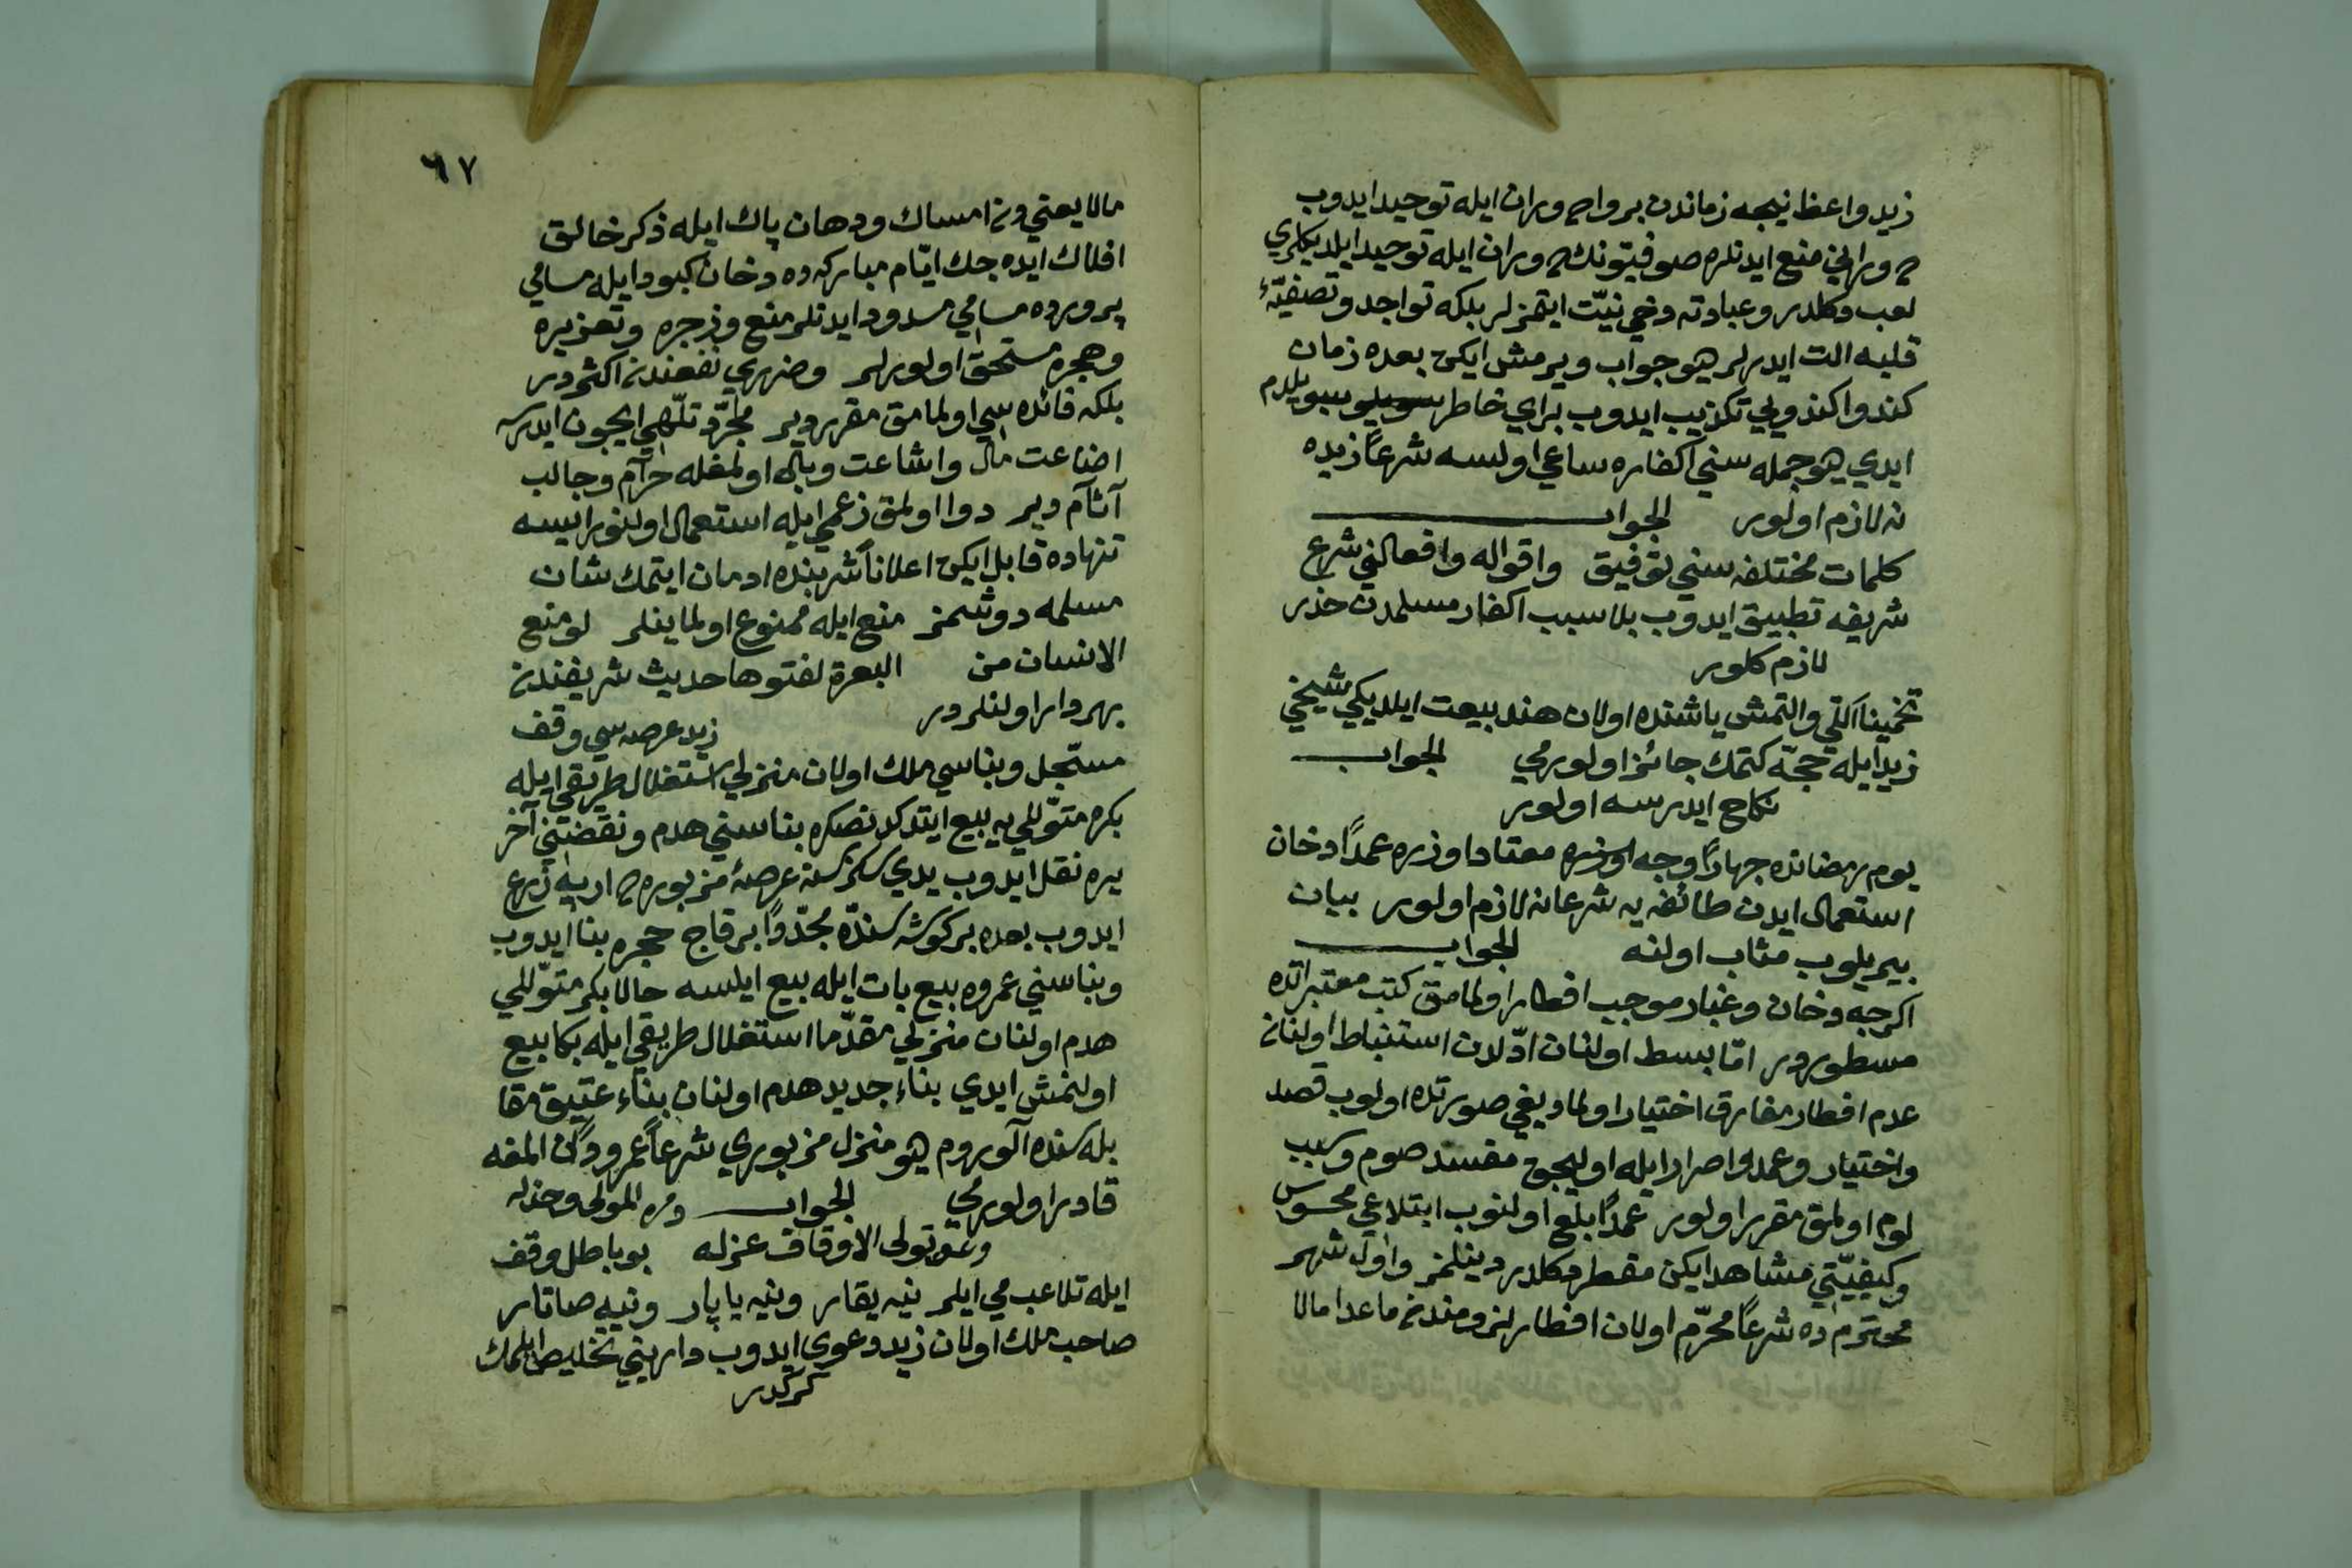 زيد واعظ نيجه زماندن برو اح وران ايله توحيد ايدوب
وراني منع ايدنلره صوفيتونك وران ايله توحيد ايلديكلري
لعب دكلدر وعبادته دخي نيّت ايتمزلر بلكه تواجد وتصفيۀ
قلبه الت ايدرلر هيو جواب ويرمش ايكن بعده زمان
كندو كندويي تكذيب ايدوب براي خاطر سويلدم
ايدي هيو جمله سني اكفاره ساعي اولسه شرعاً زيده
نه لازم اولور الجواب
كلمات مختلفه سني توفيق واقواله وافعالني شرع
شريفه تطبيق ايدوب بلا سبب اكفار مسلمدن حذر
لازم كلور
تخميناً اللي والتمش ياشنده اولان هند بيعت ايلديكي شيخي
زيد ايله حجّه كتمك جائز اولورمي الجواب
نكاح ايدرسه اولور
يوم رمضانده جهاراً وجه اوزره معتاد اوزره عمداً دخان
استعمال ايدن طائفه يه شرعا نه لازم اولور بيان
بيريلوب مثاب اولنه الجواب
اكرچه دخان وغبار موجب افطار اولمامق كتب معتبراتده
مسطوردر امّا بسط اولنان ادّلدن استنباط اولنان
عدم افطار مفارق اختيار اولماديغي صورتده اولوب قصد
واختيار وعمد واصرار ايله اوليجق مفسد صوم وسبب
لوم اولمق مقرر اولور عمداً بلع اولنوب ابتلاعي محسوس
وكيفيّتي مشاهد ايكن مفطر دكلدر دينلمز واول شهر
محترم ده شرعاً محرّم اولان افطار لزومندن ماعدا مالا
٦٧
مالا يعنيدن امساك ودهان پاك ايله ذكر خالق
افلاك ايده جك ايّام مباركه ده دخان كبود ايله مسامي
پرورده مسامي مسدود ايدنلر منع وزجره وتعزيره
وهجره مستحق اولورلر وضرري نفعندن اكثردر
بلكه فائده سي اولمامق مقرردر مجرّد تلّهي ايچون ايدرسه
اضاعت مال واشاعت وبال اولمغله حرام وجالب
آثام دير دوا اولمق زعمي ايله استعمال اولنور ايسه
تنهاده قابل ايكن اعلاناً شربنده ادمان ايتمك شان
مسلمه دوشمز منع ايله ممنوع اولماينلر لو منع
الانسان من البعرة لفتوها حديث شريفندن
بهردار اولنلردر زيد عرصه سي وقف
مسجّل وبناسي ملك اولان منزلي استغلال طريقي ايله
بكره متوّللي يه بيع ايتدكدنصكره بناسني هدم ونقضيني آخر
يره نقل ايدوب يدي سكز سنه عرصۀ مزبوره ح اربه زرع
ايدوب بعده بر كوشه سنده مجدّداً بر قاچ حجره بنا ايدوب
وبناسني عمروه بيع بات ايله بيع ايلسه حالا بكر متوّللي
هدم اولنان منزلي مقدّما استغلال طريقي ايله بكا بيع
اولنمش ايدي بناء جديد هدم اولنان بناء عتيق مقا
بله سنده آلورم هيو منزل مزبوري شرعاً عمرودن المغه
قادر اولورمي الجواب دمره المولى وخذله
وعن تولى الاوقاف عزله بو باطل وقف
ايله تلاعب مي ايلر نيه يقار ونيه ياپار ونيه صاتار
صاحب ملك اولان زيد دعوى ايدوب دارينني تخليص ايلمك
كركدر